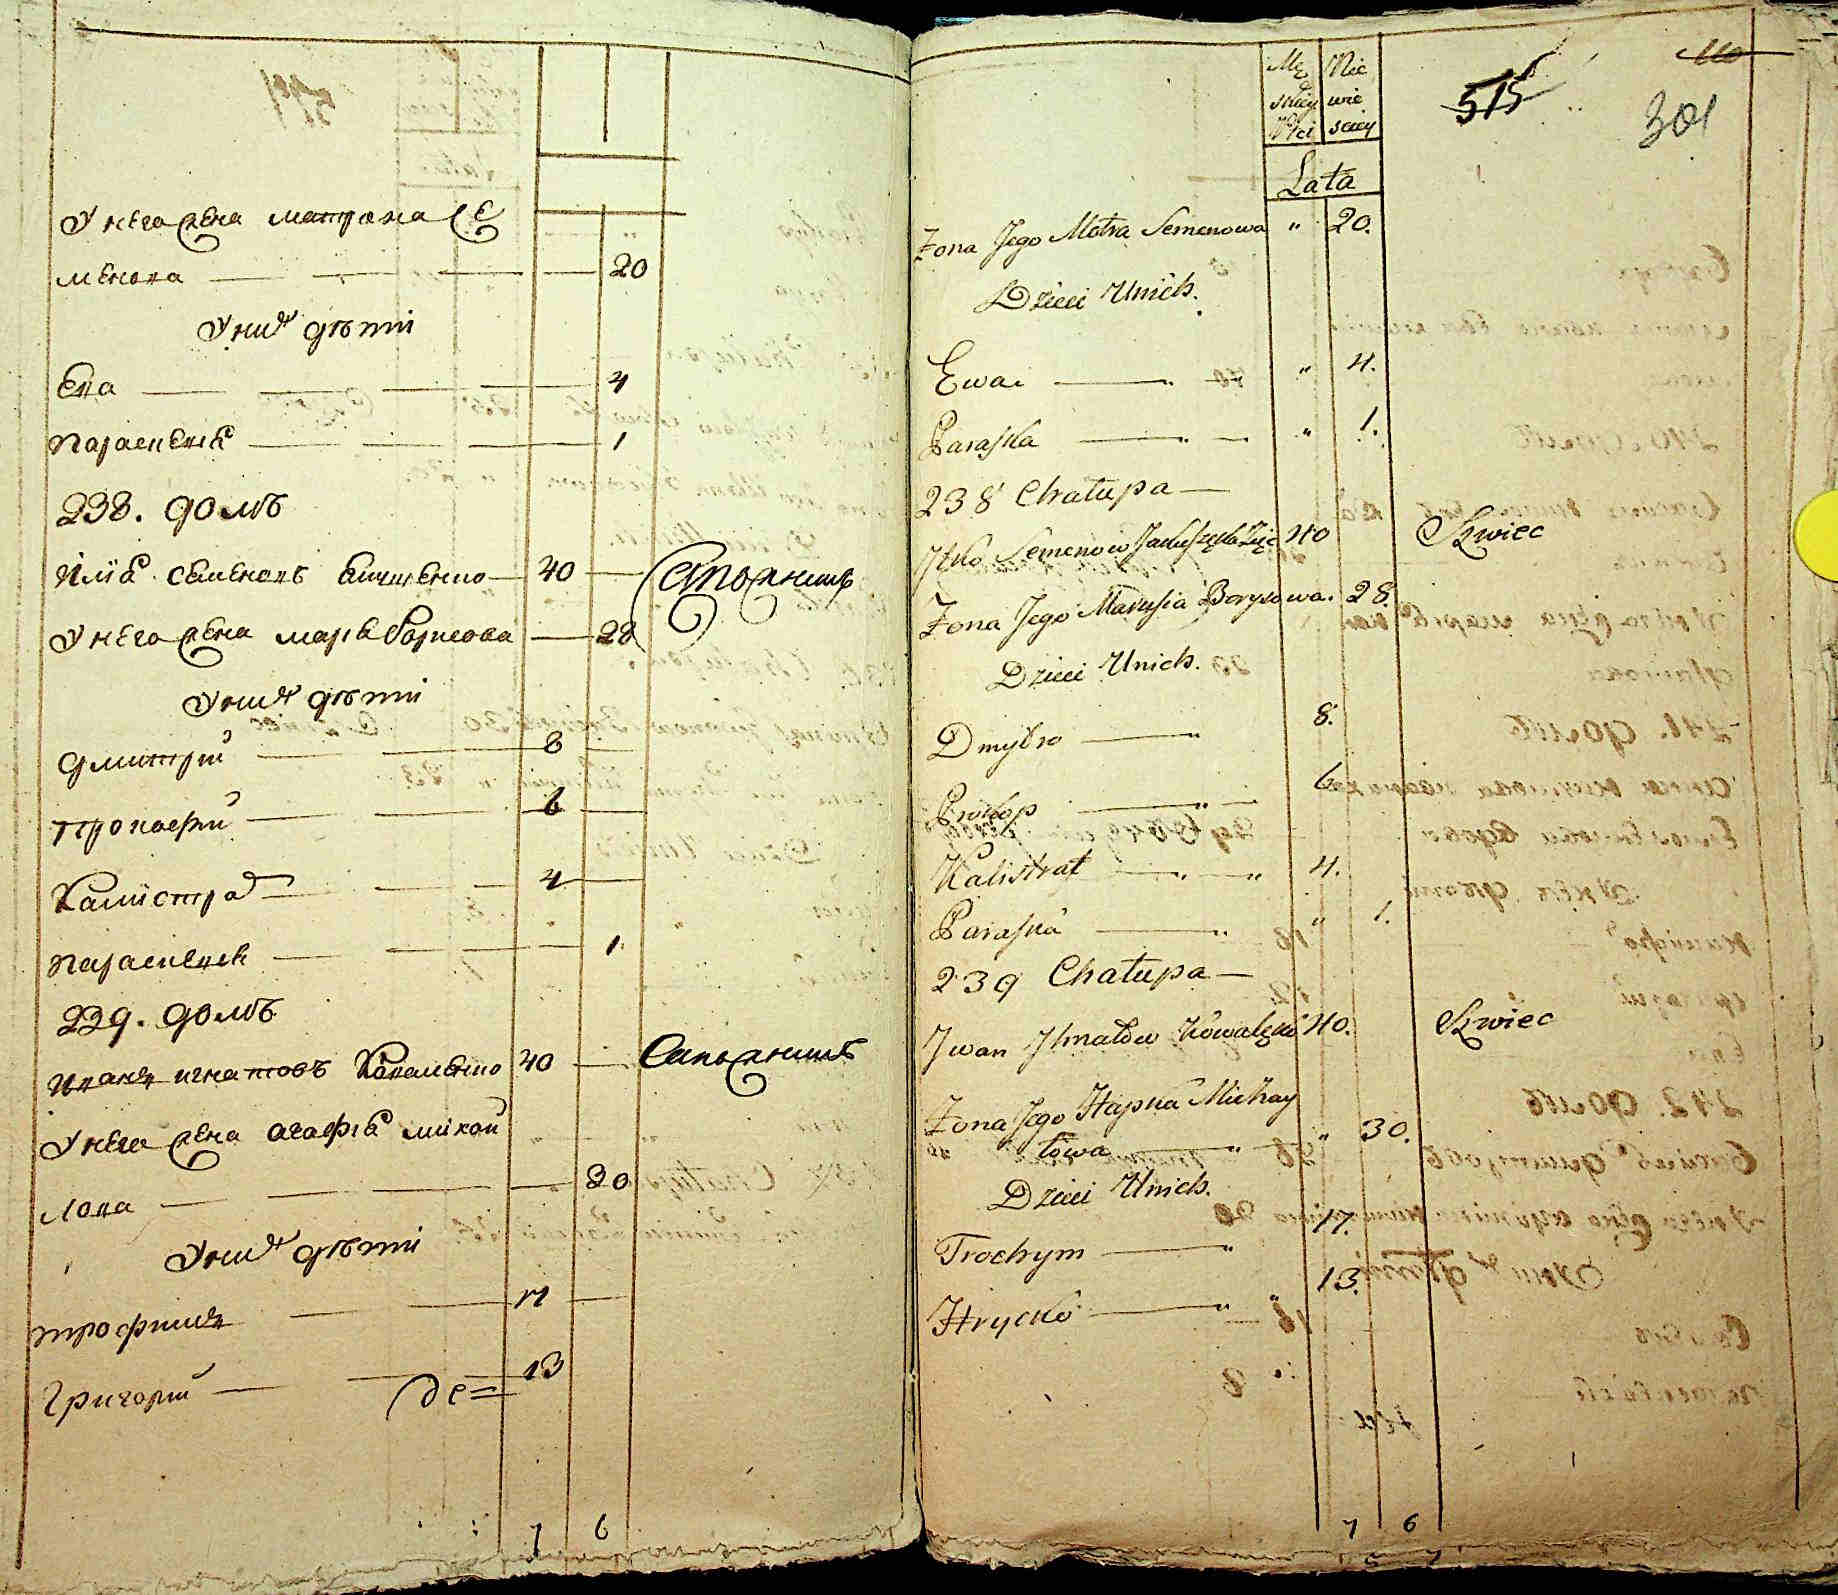 У него жена матрона Се
менова — 20
У них дѣти
Ева — 4
Параскевіа — 1
238. домъ
Иліа семеновъ — 40 — Сапожникъ
У него жена маріа борисова — 28
У них дѣти
Дмитрий — 8
Прокофий — 6
Калистрад — 4
Параскевіа — 1
239. домъ
Иванъ игнатовъ Коваленко 40 — Сапожникъ
У него жена агафіа михай
лова — 30
У них дѣти
трофимъ — 17
Григорий — 13
7 6
110
515
301
Męskiey Płci Niewieściey
Lata
Żona Jego Motra Semenowa " 20.
Dzieci Unich.
Ewa — " 4.
Paraska — " 1.
238 Chałupa —
Semenow 40 Szwiec
Żona Jego Marusia Borysowa. 28.
Dzieci Unich.
Dmytro — " 8.
Prokop — " 6
Kalistrat — " 4.
Paraska — " 1.
239 Chałupa —
Jwan Jhnatów Kowalęko 40. Szwiec
Żona Jego Hapka Michay
łowa — " 30.
Dzieci Unich.
Trochym — " 17.
Hrycko — " 13.
7 6